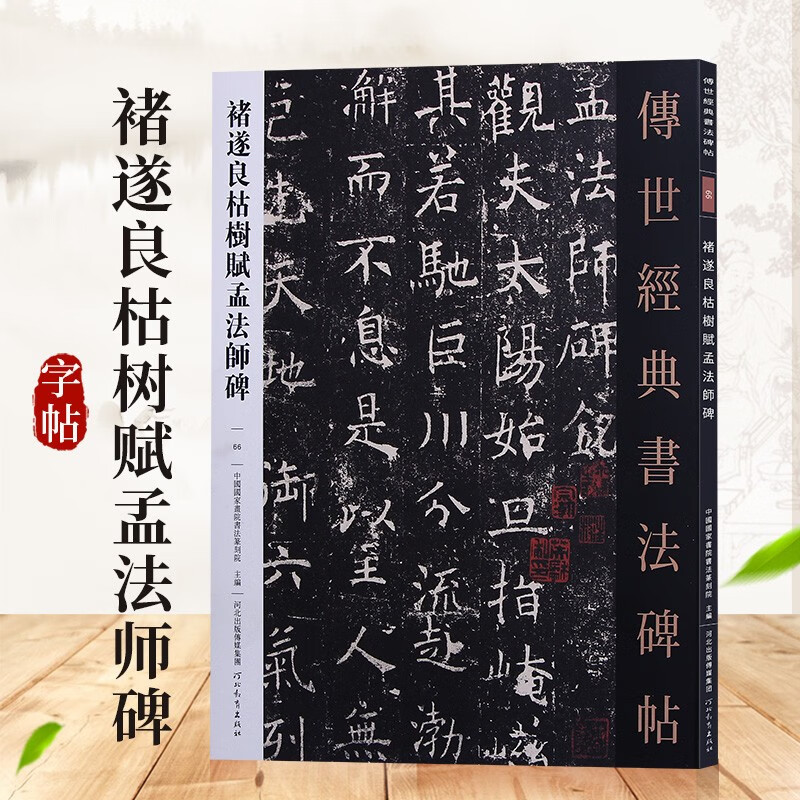 褚遂良枯树赋孟法师碑
字帖
褚遂良枯樹賦孟法師碑
66
中國國家畫院書法篆刻院 主編
河北出版傳媒集團
河北教育出版社
孟法師碑銘
觀夫太陽始旦指崦嵫
其若馳巨川分流赴渤
澥而不息是以至人無
己先天地御六氣列
傳世經典書法碑帖
傳世經典書法碑帖
66
褚遂良枯樹賦孟法師碑
中國國家畫院書法篆刻院 主編
河北出版傳媒集團
河北教育出版社